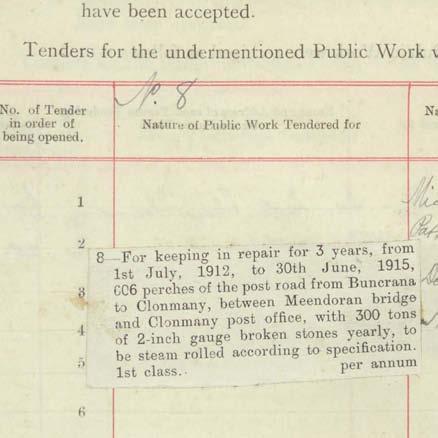 have been accepted.
Tenders for the undermentioned Public Work
No. 8
No. of Tender
in order of
being opened.
Nature of Public Work Tendered for
1
2
8—For keeping in repair for 3 years, from
1st July, 1912, to 30th June, 1915,
606 perches of the post road from Buncrana
to Clonmany, between Meendoran bridge
and Clonmany post office, with 300 tons
of 2-inch gauge broken stones yearly, to
be steam rolled according to specification.
1st class. per annum
3
4
5
6